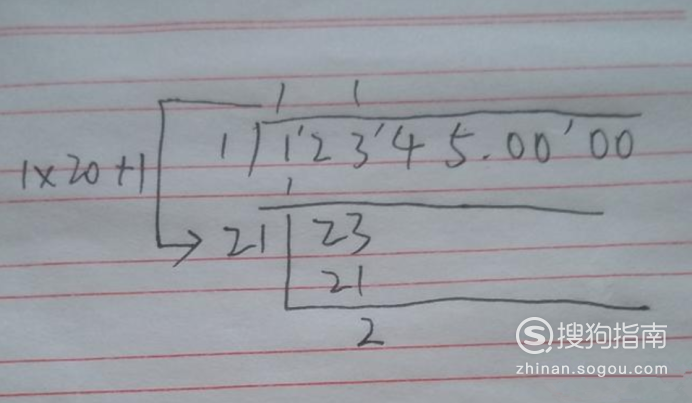 1 1
1×20+1
1 1'23'45.00'00
1
21 23
21
2
搜狗指南
zhinan.sogou.com